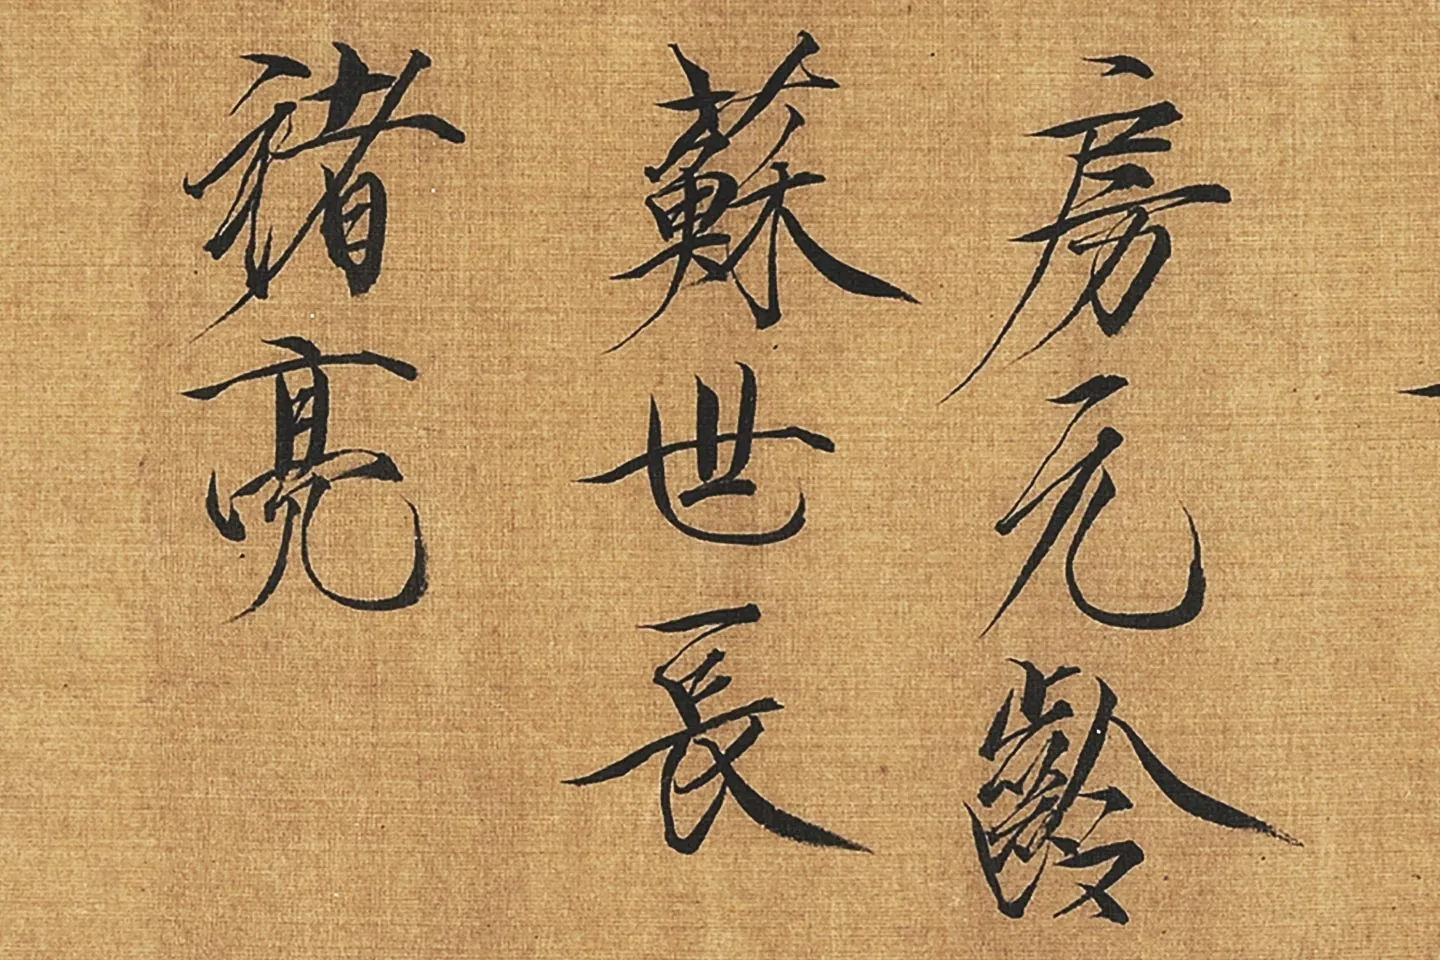 房元齡
蘇世長
褚亮